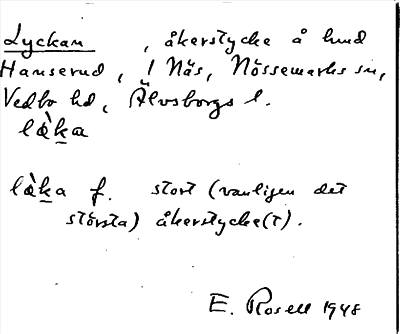 Lyckan , åkerstycke å hmd
Hanserud, 1 Näs, Nössemarks sn,
Vedbo hd, Älvsborgs l.
lǝ̀ka

lǝ̀ka f. stort (vanligen det
största) åkerstycke(t).

E. Rosell 1948